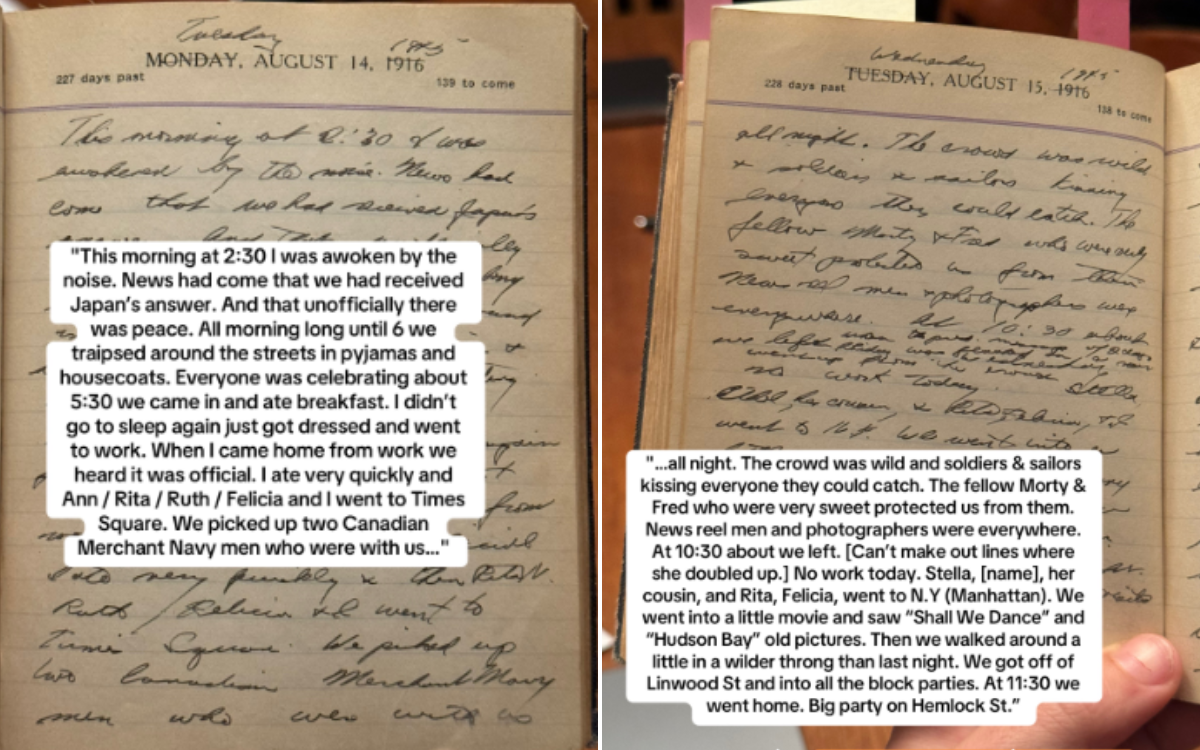 Tuesday 1945
MONDAY, AUGUST 14, 1916
227 days past 139 to come
This morning at 2:30 I was
awakened by the noise. News had
come that we had received Japan's
"This morning at 2:30 I was awoken by the
noise. News had come that we had received
Japan's answer. And that unofficially there
was peace. All morning long until 6 we
traipsed around the streets in pyjamas and
housecoats. Everyone was celebrating about
5:30 we came in and ate breakfast. I didn't
go to sleep again just got dressed and went
to work. When I came home from work we
heard it was official. I ate very quickly and
Ann / Rita / Ruth / Felicia and I went to Times
Square. We picked up two Canadian
Merchant Navy men who were with us..."
I ate very quickly & then Rita V.
Ruth / Felicia & I went to
Times Square. We picked up
two Canadian Merchant Navy
men who were with us
Wednesday 1945
TUESDAY, AUGUST 15, 1916
228 days past 138 to come
all night. The crowd was wild
& soldiers & sailors kissing
everyone they could catch. The
fellow Morty & Fred who were very
sweet protected us from them
News reel men & photographers were
everywhere. At 10:30 about
we left
no work today. Stella,
her cousin, & Rita, Felicia, & I
went to N.Y. We went into a
"...all night. The crowd was wild and soldiers & sailors
kissing everyone they could catch. The fellow Morty &
Fred who were very sweet protected us from them.
News reel men and photographers were everywhere.
At 10:30 about we left. [Can't make out lines where
she doubled up.] No work today. Stella, [name], her
cousin, and Rita, Felicia, went to N.Y (Manhattan). We
went into a little movie and saw "Shall We Dance" and
"Hudson Bay" old pictures. Then we walked around a
little in a wilder throng than last night. We got off of
Linwood St and into all the block parties. At 11:30 we
went home. Big party on Hemlock St."